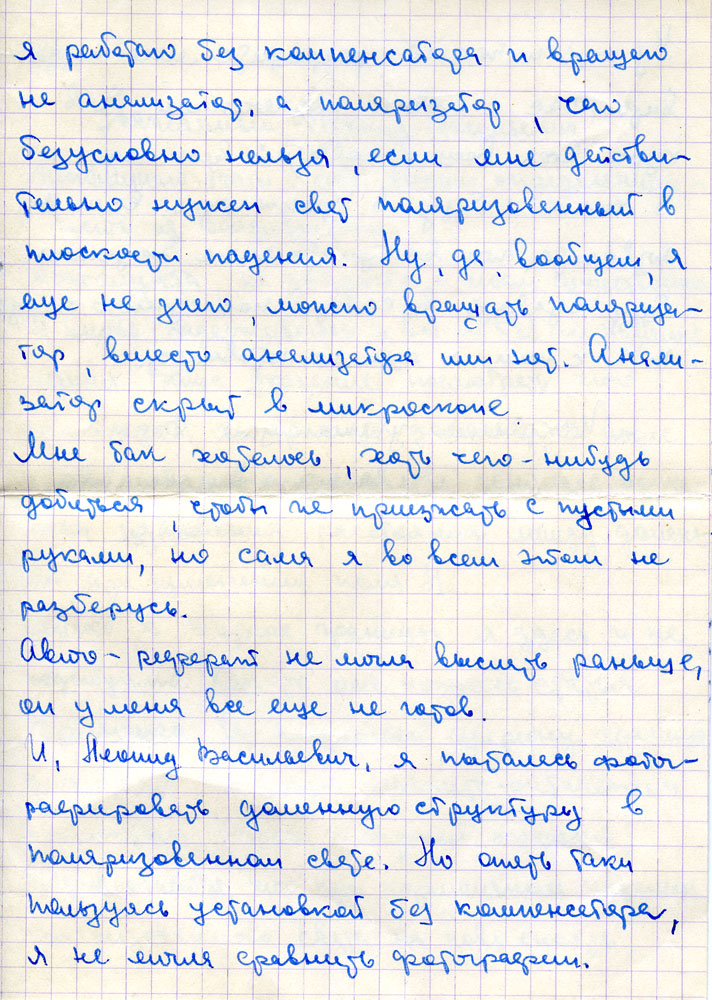 я работаю без компенсатора и вращаю
не анализатор, а поляризатор, чего
безусловно нельзя, если мне действи-
тельно нужен свет поляризованный в
плоскости падения. Ну, да, вообщем, я
еще не знаю, можно вращать поляриза-
тор, вместо анализатора или нет. Анали-
затор скрыт в микроскопе
Мне так хотелось, хоть чего-нибудь
добиться, чтобы не приезжать с пустыми
руками, но сама я во всем этом не
разберусь.
Авто-реферат не могла выслать раньше,
он у меня все еще не готов.
И, Леонид Васильевич, я пыталась фотог-
рафировать доменную структуру в
поляризованном свете. Но опять таки
пользуясь установкой без компенсатора,
я не могла сравнить фотографии.